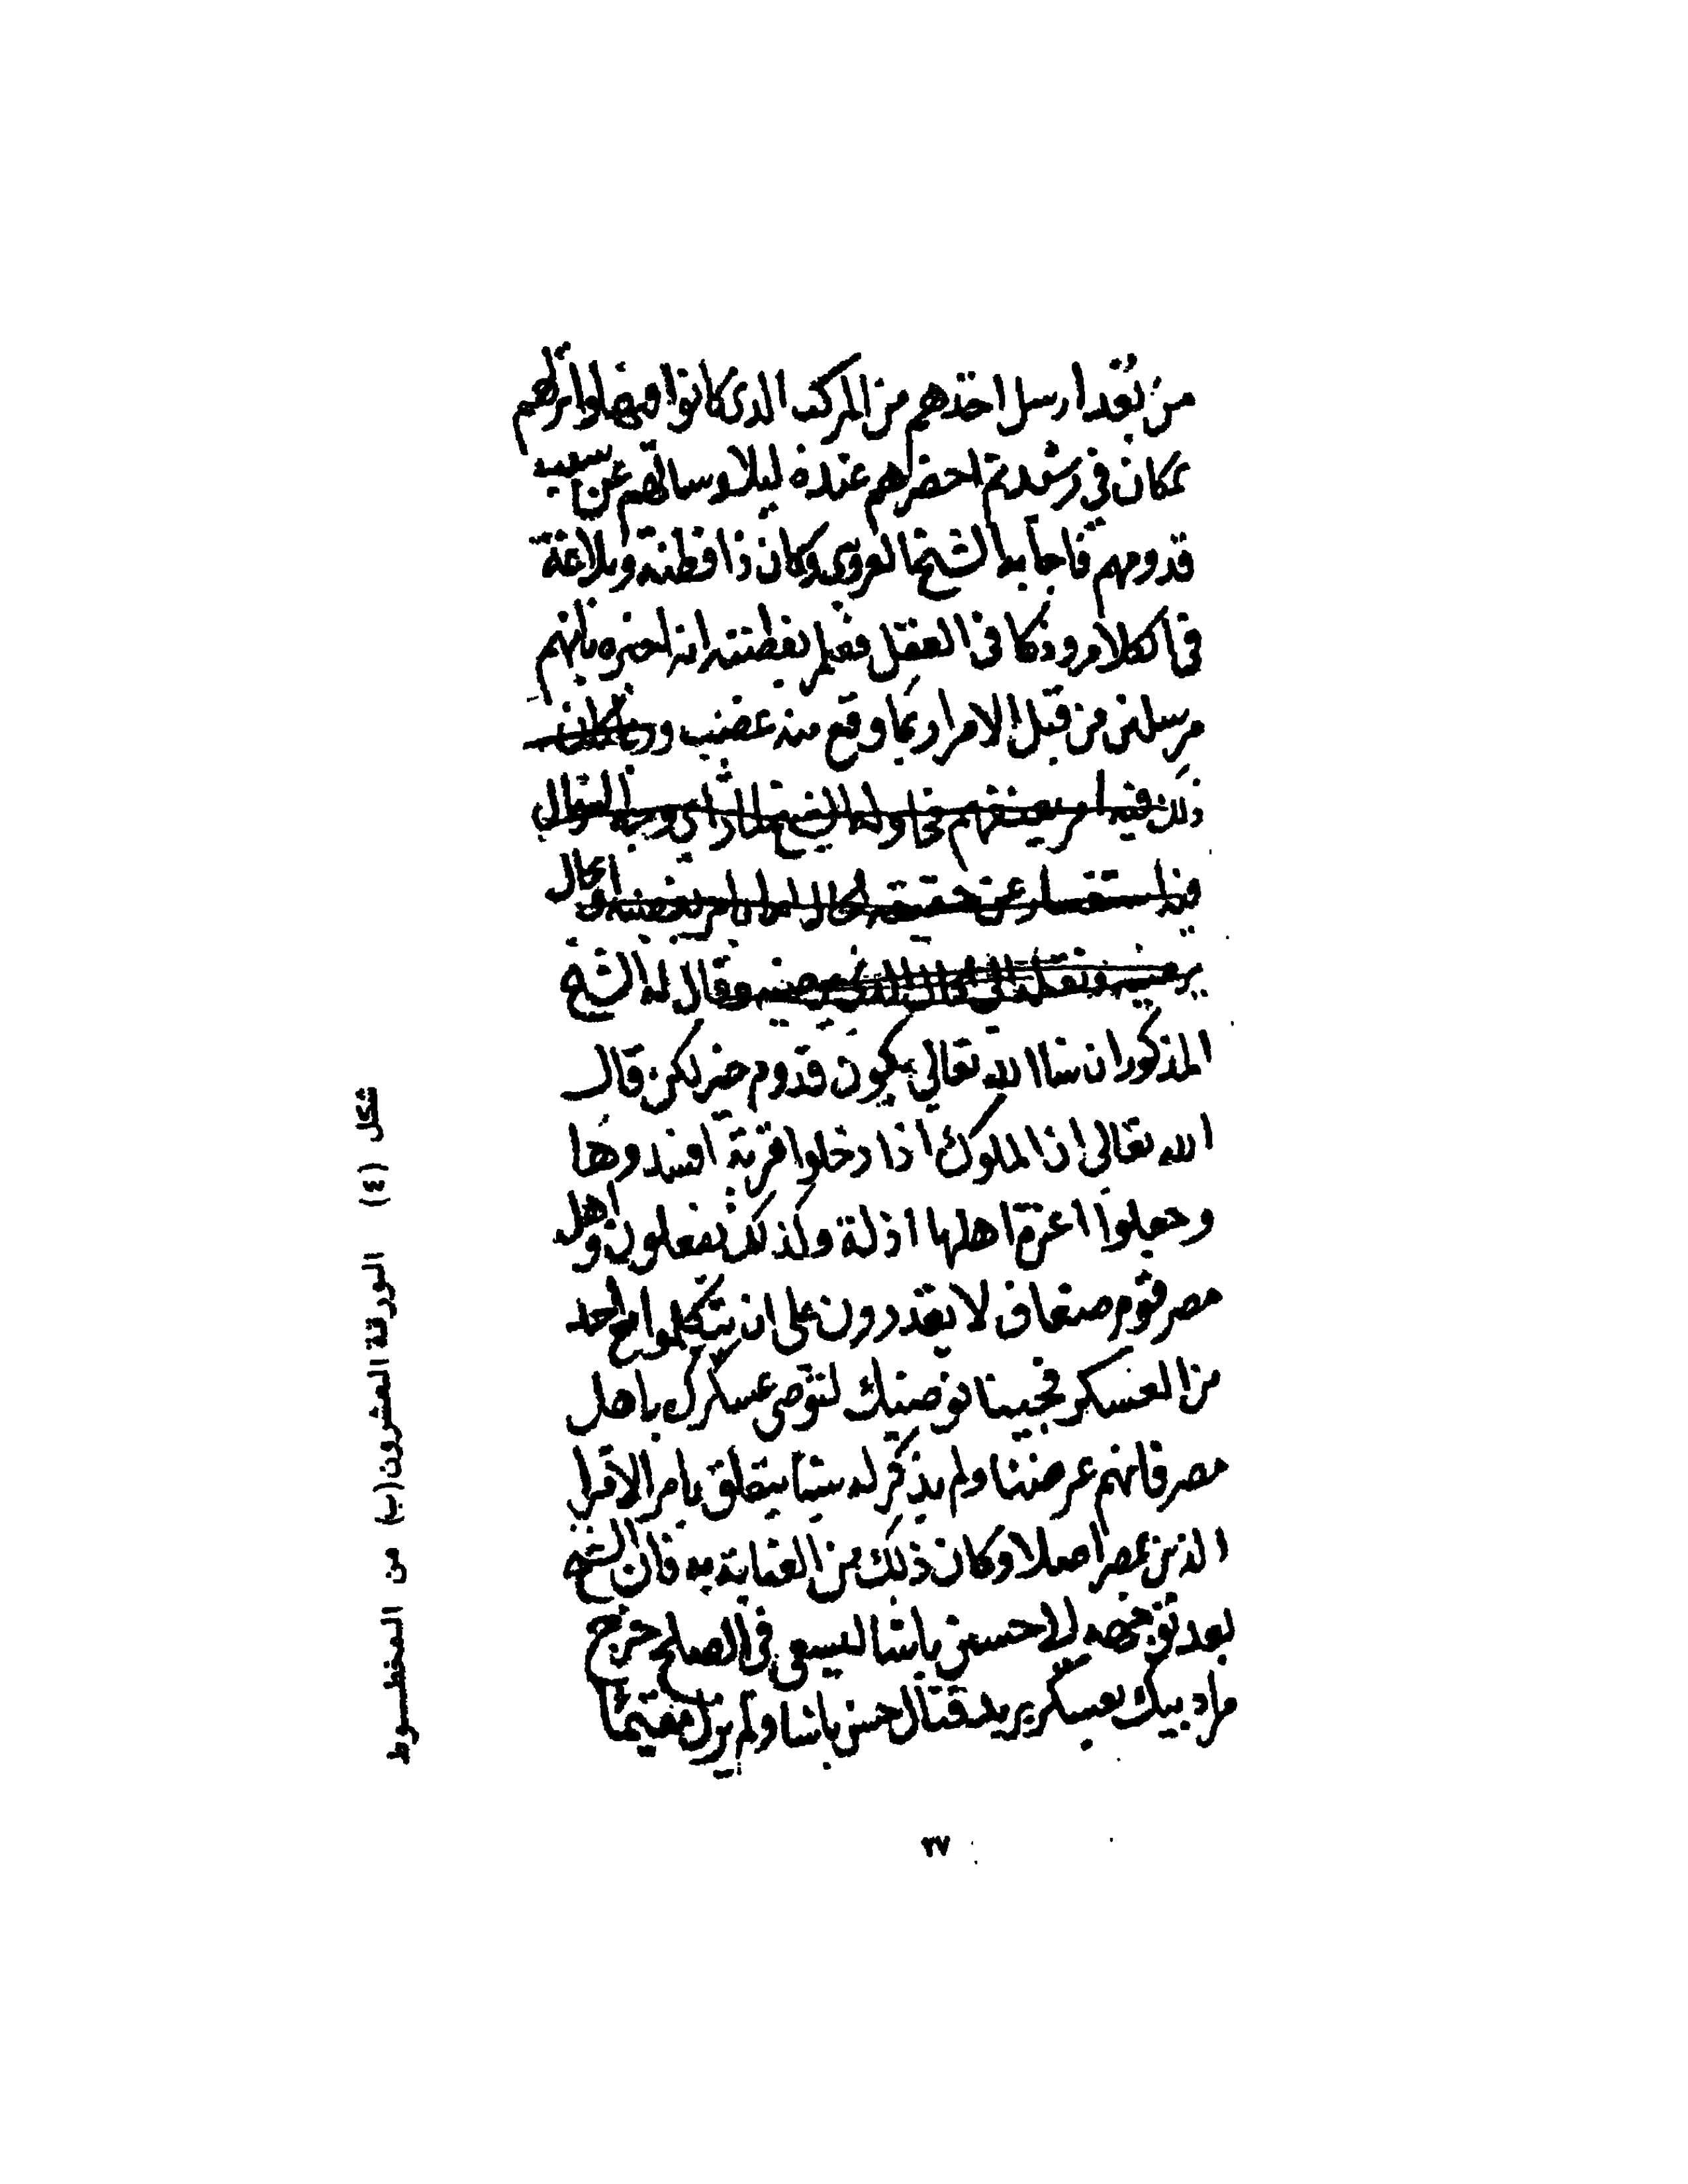 من بعد ارسل اخذهم من المركب الذى كانوا فيها وانزلهم
بمكان فى رشيد ثم احضرهم عنده ليلا وسالهم عن سبب
قدومهم فاجابه الشيخ العروسى وكان ذا فطنة وبلاغة
فى الكلام وذكا فى العقل فعلم بفطنته انه اخبره بانهم
مرسلين من قبل الامرا ربما وقع منه غضب وربما كان
ذلك فيه امر
فيه استفسار عن حقيقة الحال
وقال له الشيخ
المذكور ان شاالله تعالى يكون قدوم خير لكن قال
الله تعالى ان الملوك اذا دخلوا قرية افسدوها
وجعلوا اعزة اهلها اذلة وكذلك يفعلون واهل
مصر قوم ضعاف لا يقدرون على ان يتكلموا مع احد
من العسكر فجينا نوصيك لتوصى عسكرك باهل
مصر فانهم عرضنا ولم يذكر له شيا يتعلق بامر الامرا
الذين بمصر اصلا وكان ذلك من العناية به فان الشيخ
بعد توجهه لا حسين باشا ليسعى فى الصلح خرج
مراد بيك بعسكر يريد قتال حسن باشا ولم يزل مقيما
شكل (٤) الورقة العشرون (ب) من المخطوط
٣٧